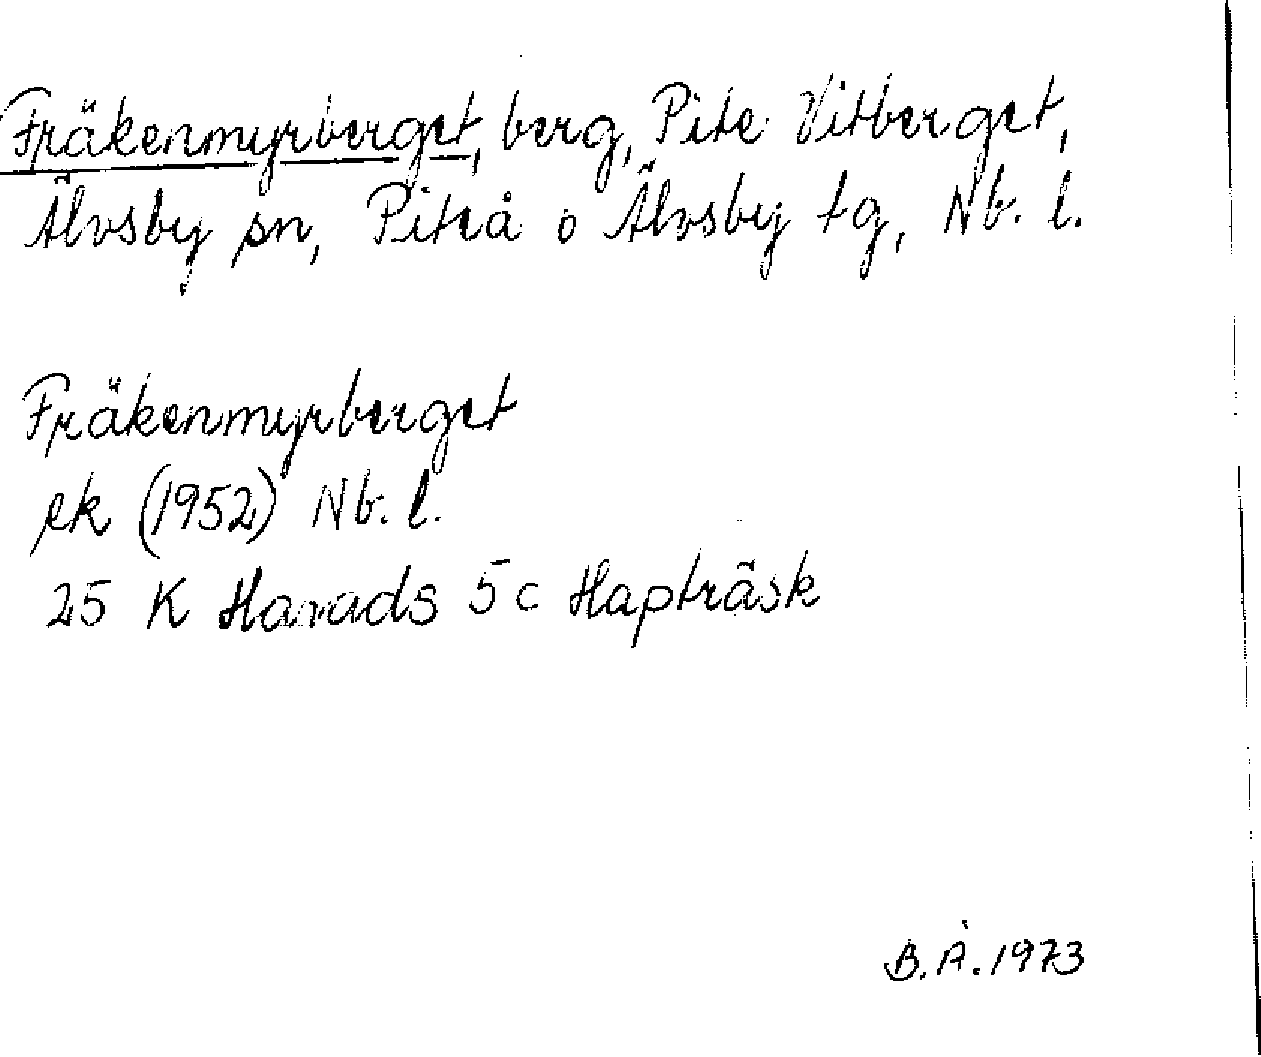 Fräkenmyrberget, berg, Pite Vitberget,
Älvsby sn, Piteå o Älvsby tg, Nb. l.
Fräkenmyrberget
ek (1952) Nb. l.
25 K Harads 5 c Hapträsk
B.Å. 1973